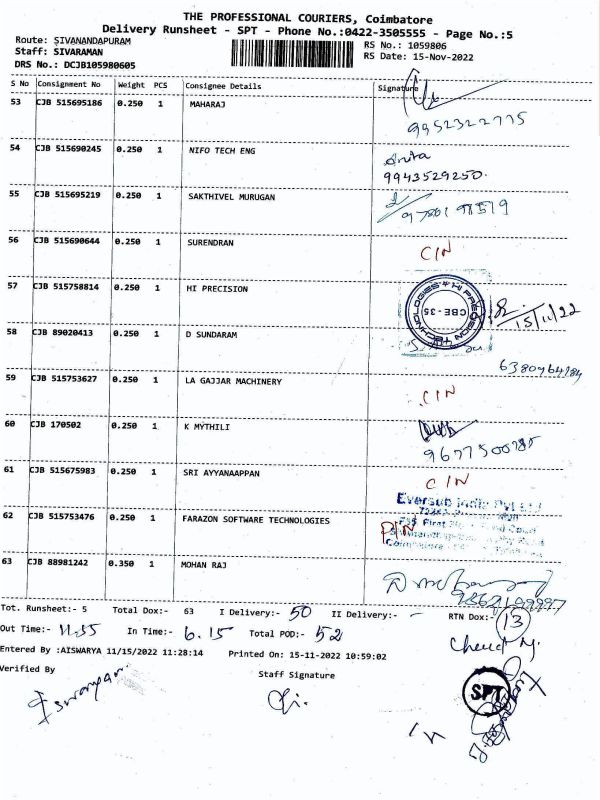 THE PROFESSIONAL COURIERS, Coimbatore
Delivery Runsheet - SPT - Phone No.:0422-3505555 - Page No.:5
Route: SIVANANDAPURAM
RS No.: 1059806
Staff: SIVARAMAN
RS Date: 15-Nov-2022
DRS No.: DCJB105980605
S No Consignment No Weight PCS Consignee Details Signature
53 CJB 515695186 0.250 1 MAHARAJ
9952322775
54 CJB 515690245 0.250 1 NIFO TECH ENG
Anita
9943529250.
55 CJB 515695219 0.250 1 SAKTHIVEL MURUGAN
56 CJB 515690644 0.250 1 SURENDRAN
CIN
57 CJB 515758814 0.250 1 HI PRECISION
HI PRECISION TECHNOLOGIES
CBE-35
15/11/22
58 CJB 89020413 0.250 1 D SUNDARAM
59 CJB 515753627 0.250 1 LA GAJJAR MACHINERY
CIN
60 CJB 170502 0.250 1 K MYTHILI
61 CJB 515675983 0.250 1 SRI AYYANAAPPAN
CIN
Eversub India Pvt Ltd
62 CJB 515753476 0.250 1 FARAZON SOFTWARE TECHNOLOGIES
63 CJB 88981242 0.350 1 MOHAN RAJ
Tot. Runsheet:- 5 Total Dox:- 63 I Delivery:- 50 II Delivery:- - RTN Dox:- 13
Out Time:- 11.55 In Time:- 6.15 Total POD:- 52
Entered By :AISWARYA 11/15/2022 11:28:14 Printed On: 15-11-2022 10:59:02
Verified By
Staff Signature
SPT